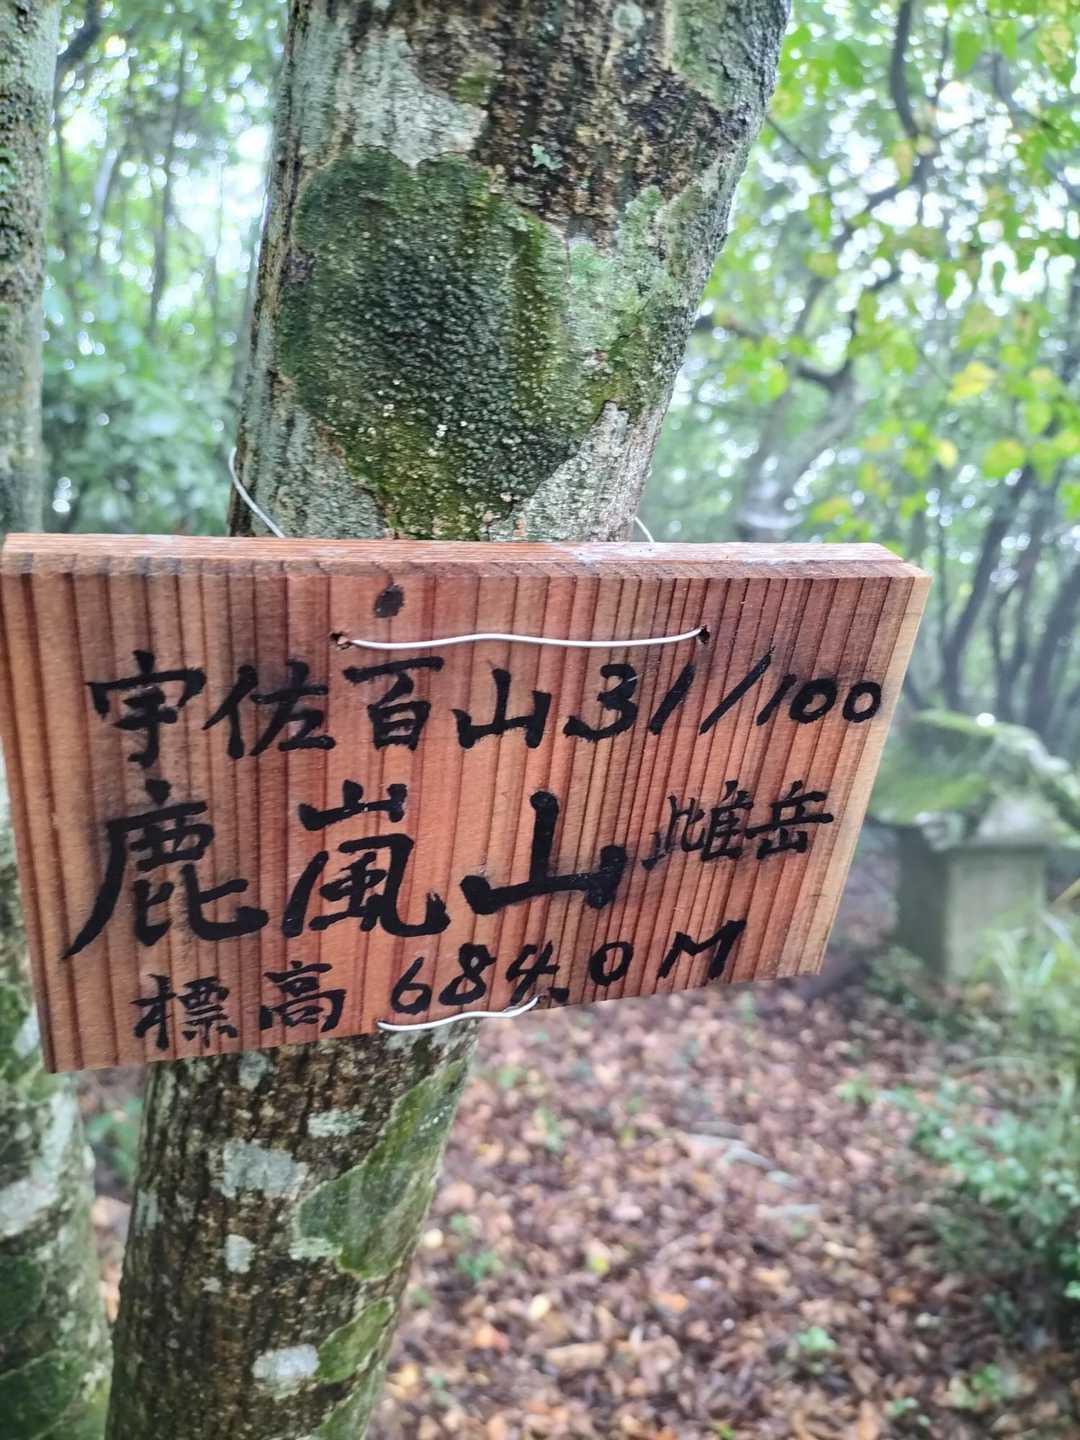 宇佐百山31/100
鹿嵐山 雌岳
標高 684.0M